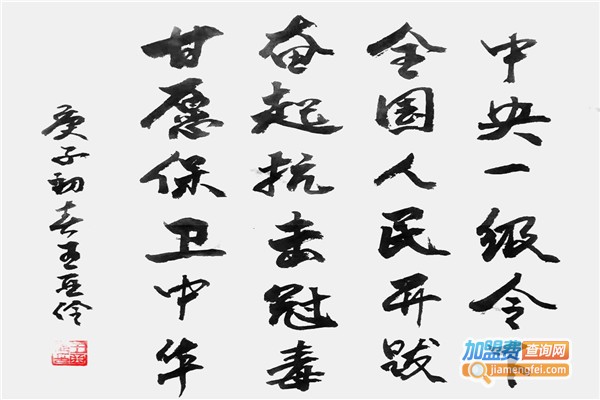 中央一级令下
全国人民开跋
奋起抗击冠毒
甘愿保卫中华
庚子初春王亚伶
加盟费查询网
jiamengfei.com